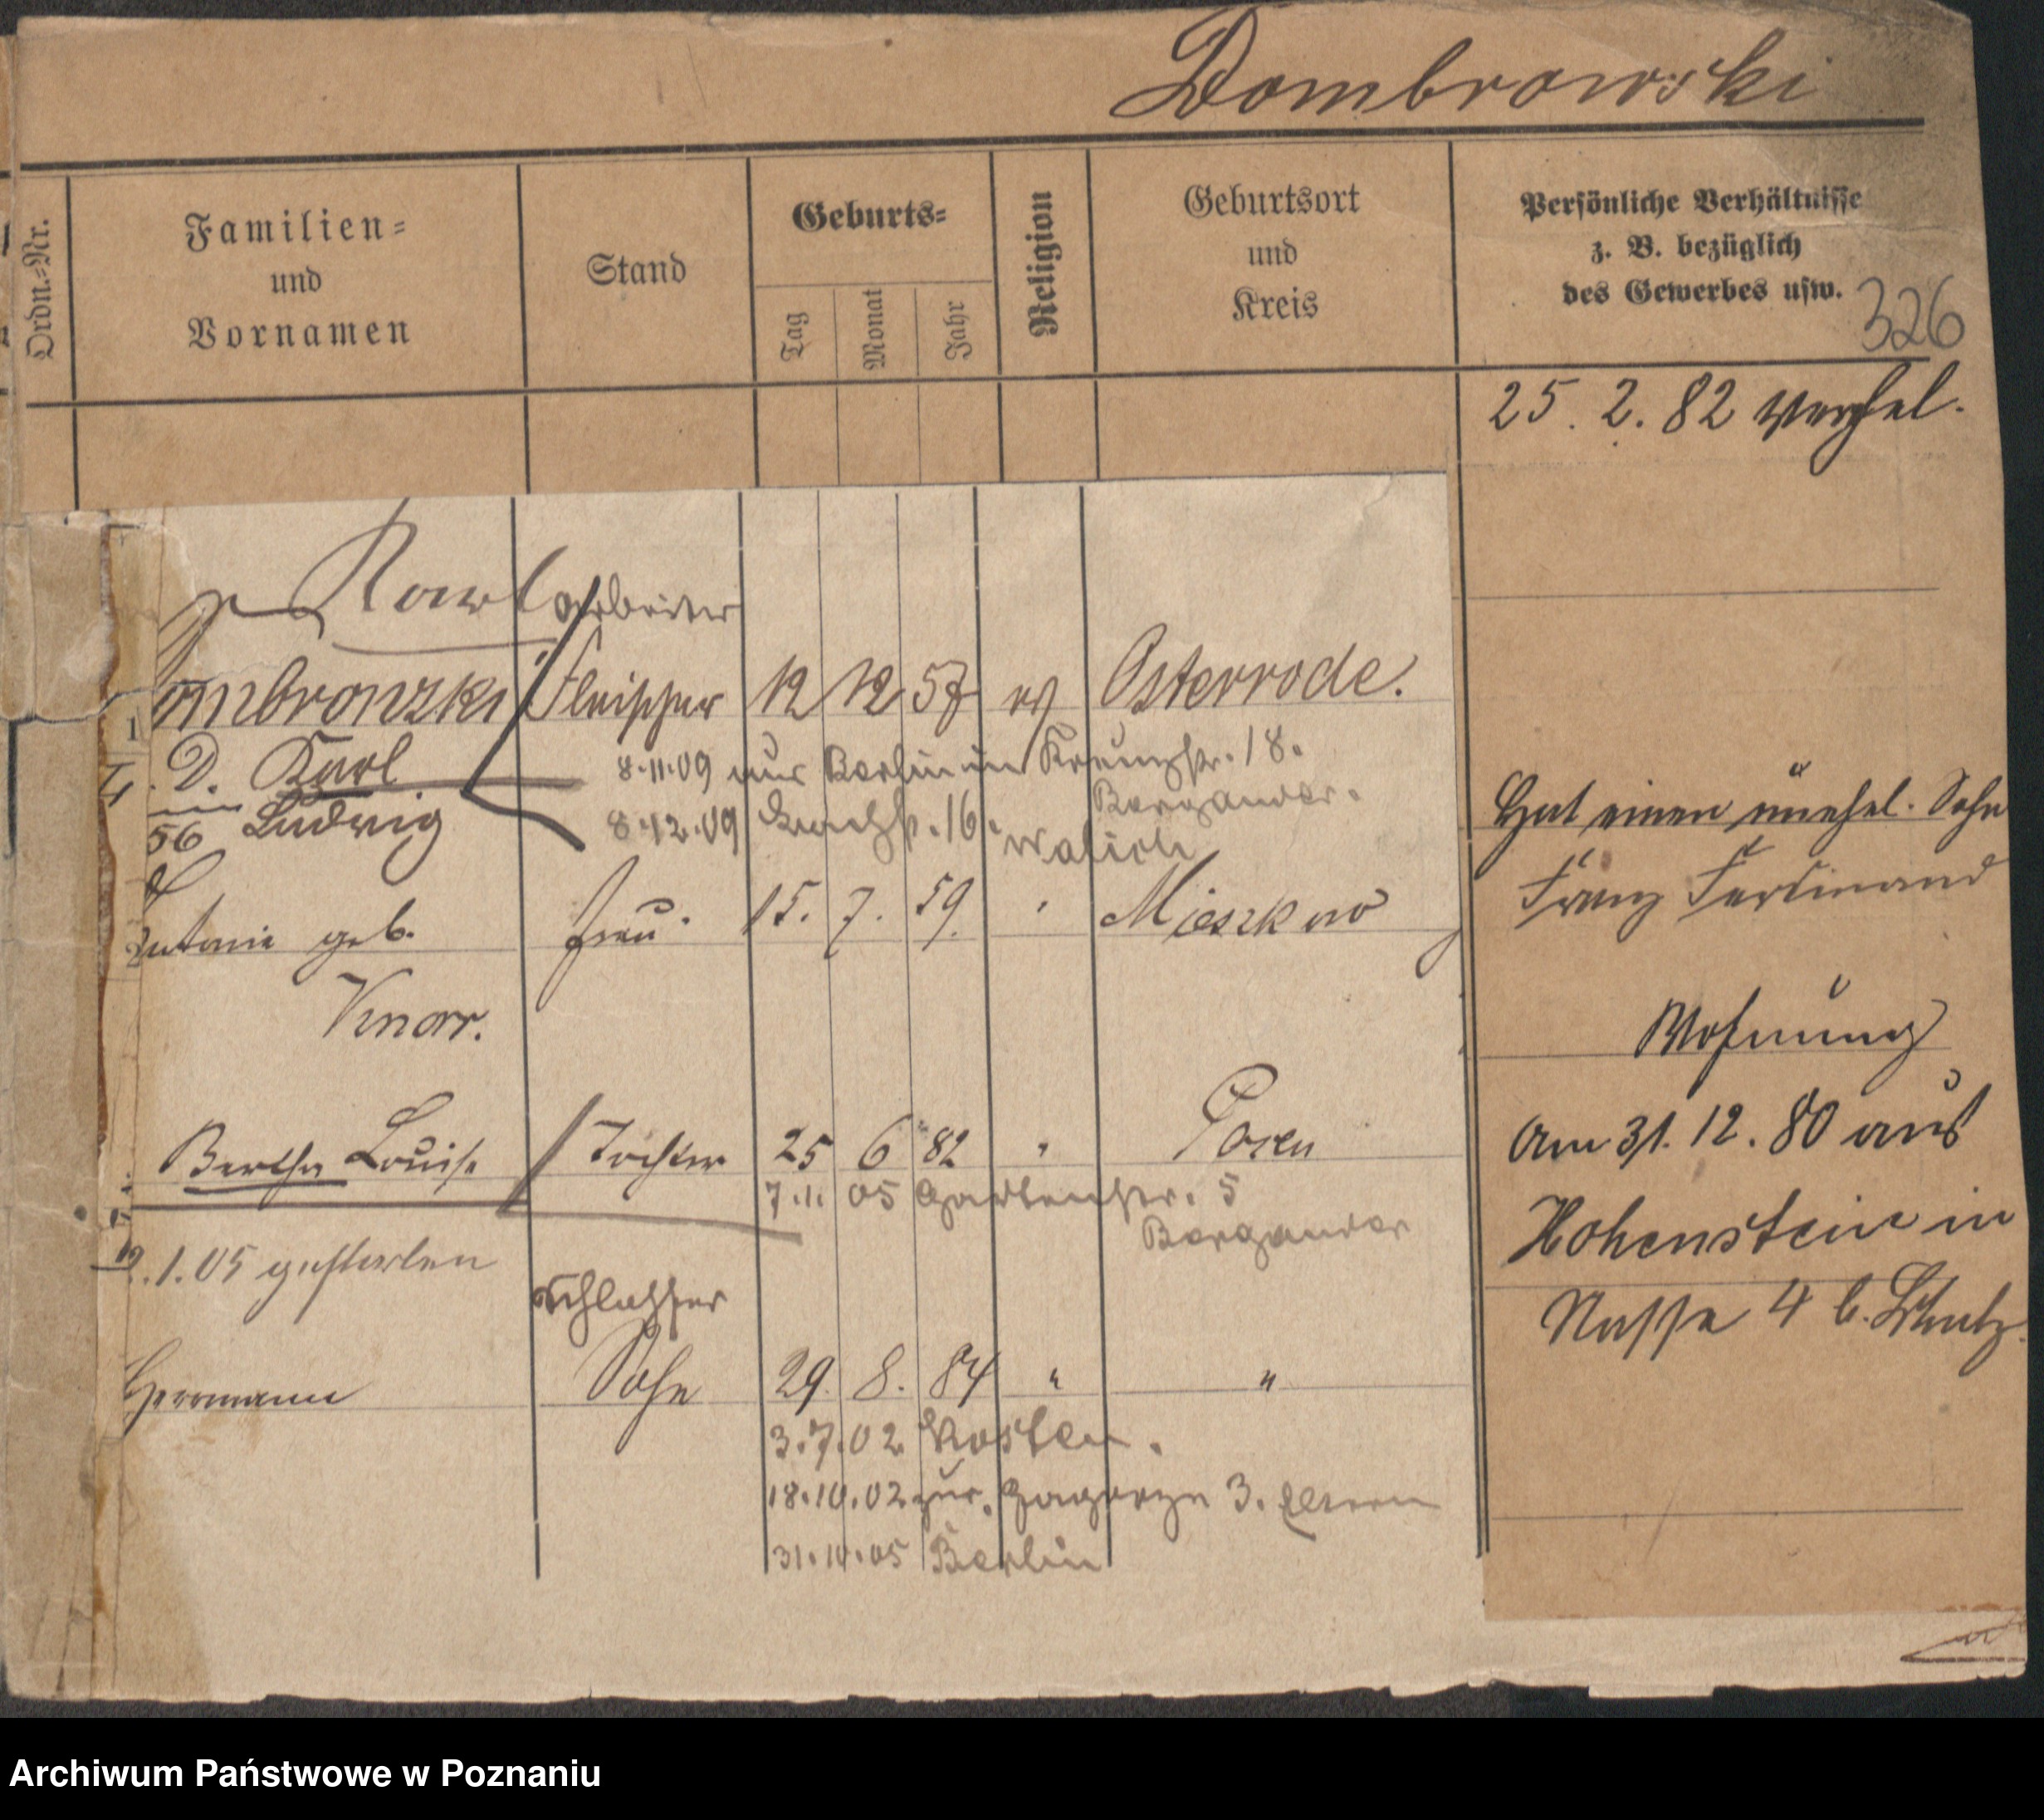 Dombrowski
Ordn.=Nr.
Familien=
und
Vornamen
Stand
Geburts=
Tag
Monat
Jahr
Religion
Geburtsort
und
Kreis
Persönliche Verhältnisse
z. B. bezüglich
des Gewerbes usw.
326
25. 2. 82 verehel.
Karl
arbeiter
1 ombrowski Fleischer 12 12 57 ev Osterrode.
D. Karl 8.11.09 aus Berlin in Kreuzstr. 18.
Bergander.
56 Ludwig 8.12.09 Bachstr. 16.
Hat einen unehel. Sohn
Franz Ferdinand
Antonie geb. Frau. 15. 7. 59. " Mieszkow
Knorr.
Wohnung
Am 31. 12. 80 aus
Hohenstein in
Bertha Louise Tochter 25 6 82 " Posen
7.1.05 Gartenstr. 5
Bergander
2.1.05 gestorben
Schlosser
Nasse 4 b.
Herrmann Sohn 29. 8. 84 " "
3.7.02 Kosten.
18.10.02 zur. Zagorze 3. Eltern
31.10.05 Berlin
Archiwum Państwowe w Poznaniu